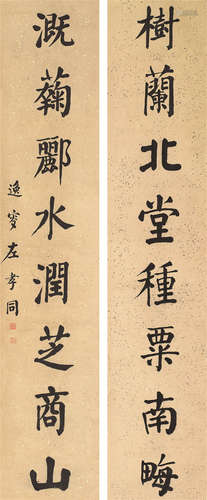 樹蘭北堂種粟南畮
溉蘜酈水潤芝商山
逸叟左孝同